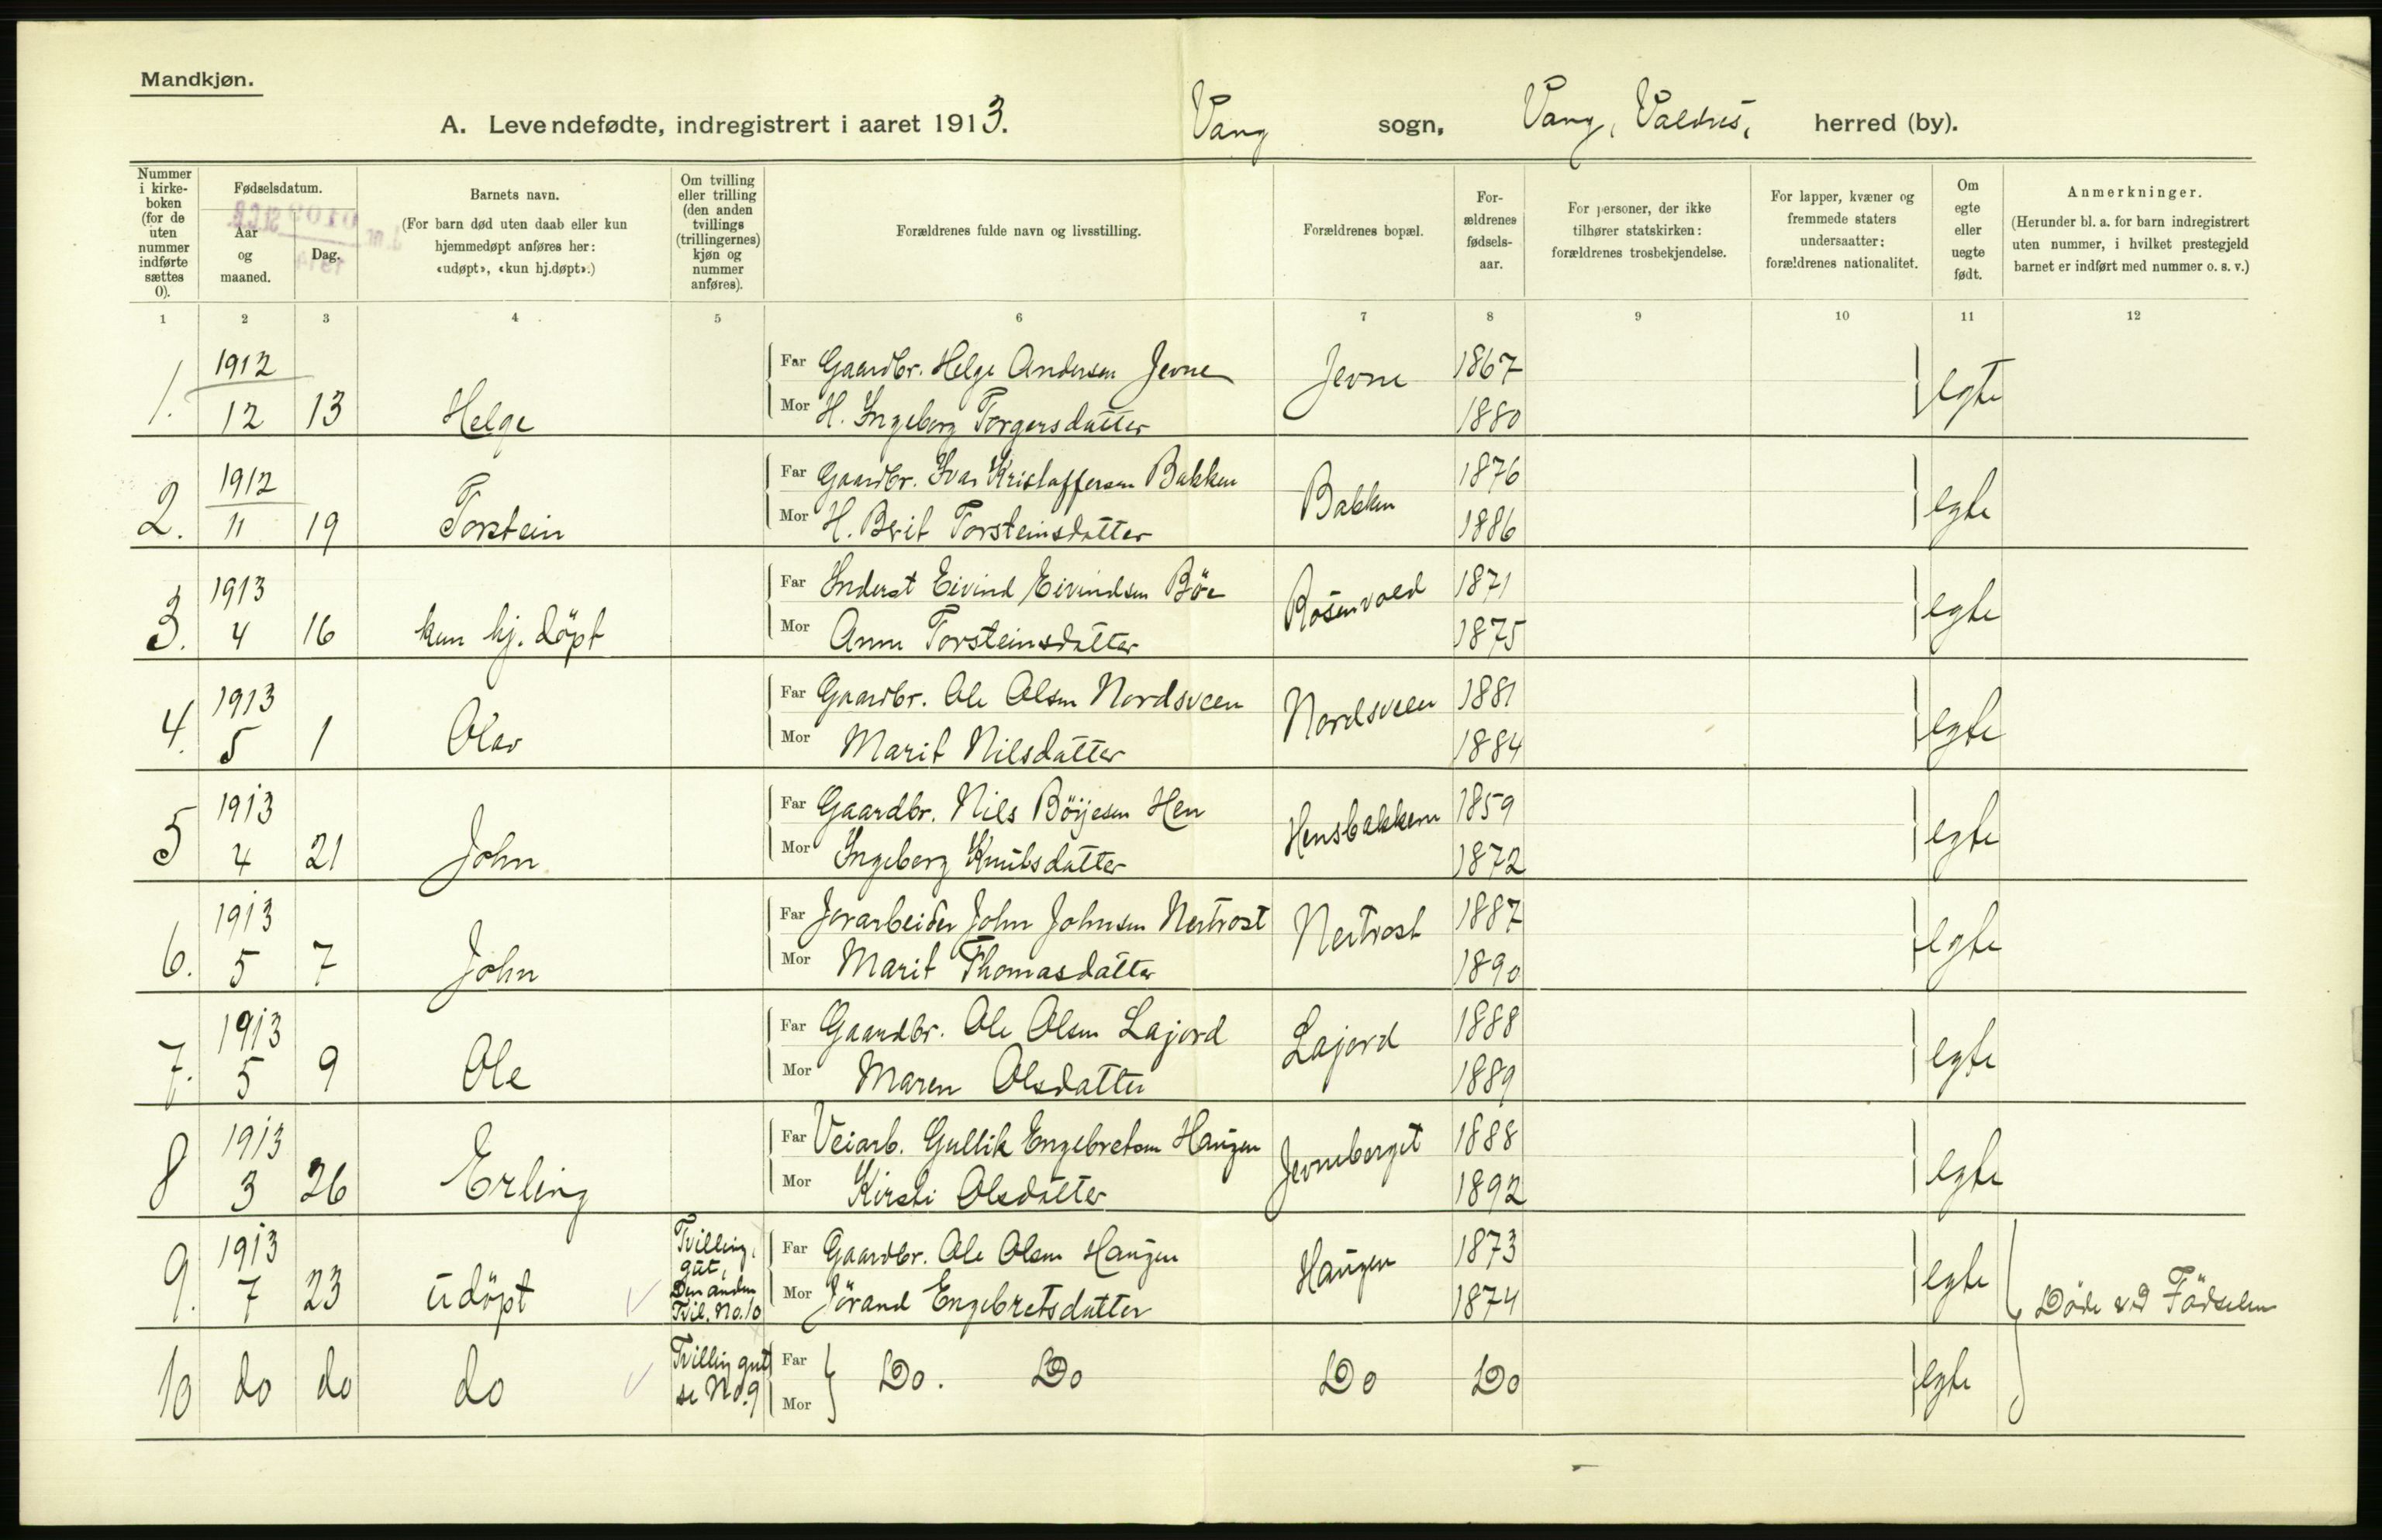 Mandkjøn.
A. Levendefødte, indregistrert i aaret 1913. Vang sogn, Vang, Valdres, herred (by).
Nummer i kirke- boken (for de uten nummer indførte sættes 0).
Fødselsdatum.
Aar og maaned.
Dag.
Barnets navn.
(For barn død uten daab eller kun hjemmedøpt anføres her: «udøpt», «kun hj.døpt».)
Om tvilling eller trilling (den anden tvillings (trillingernes) kjøn og nummer anføres).
Forældrenes fulde navn og livsstilling.
Forældrenes bopæl.
For- ældrenes fødsels- aar.
For personer, der ikke tilhører statskirken: forældrenes trosbekjendelse.
For lapper, kvæner og fremmede staters undersaatter: forældrenes nationalitet.
Om egte eller uegte født.
Anmerkninger.
(Herunder bl. a. for barn indregistrert uten nummer, i hvilket prestegjeld barnet er indført med nummer o. s. v.)
1 2 3 4 5 6 7 8 9 10 11 12
1912 Far Gaardbr. Helge Andersen Jevne Jevne 1867 egte
1. 12 13 Helge Mor H. Ingeborg Torgersdatter 1880
1912 Far Gaardbr. Ivar Kristoffersen Bakken Bakken 1876 egte
2. 11 19 Torstein Mor H. Berit Torsteinsdatter 1886
1913 Far Inderst Eivind Eivindsen Böe Rosenvold 1871 egte
3. 4 16 kun hj. döpt Mor Anne Torsteinsdatter 1875
1913 Far Gaardbr. Ole Olsen Nordsveen Nordsveen 1881 egte
4. 5 1 Olav Mor Marit Nilsdatter 1884
1913 Far Gaardbr. Nils Böijesen Hen Hensbakken 1859 egte
5 4 21 John Mor Ingeborg Knutsdatter 1872
1913 Far Jorarbeider John Johnsen Nertrost Nertrost 1887 egte
6. 5 7 John Mor Marit Thomasdatter 1890
1913 Far Gaardbr. Ole Olsen Lajord Lajord 1888 egte
7. 5 9 Ole Mor Maren Olsdatter 1889
1913 Far Veiarb. Gullik Engebretsen Haugen Jevneberget 1888 egte
8 3 26 Erling Mor Kirsti Olsdatter 1892
1913 Tvilling, gut, Far Gaardbr. Ole Olsen Haugen Haugen 1873 egte
9. 7 23 udöpt Den anden Tvil. No. 10 Mor Jörand Engebretsdatter 1874 Döde ved Födselen
10 do do do Tvilling gut se No. 9 Far Mor Do. Do Do Do egte